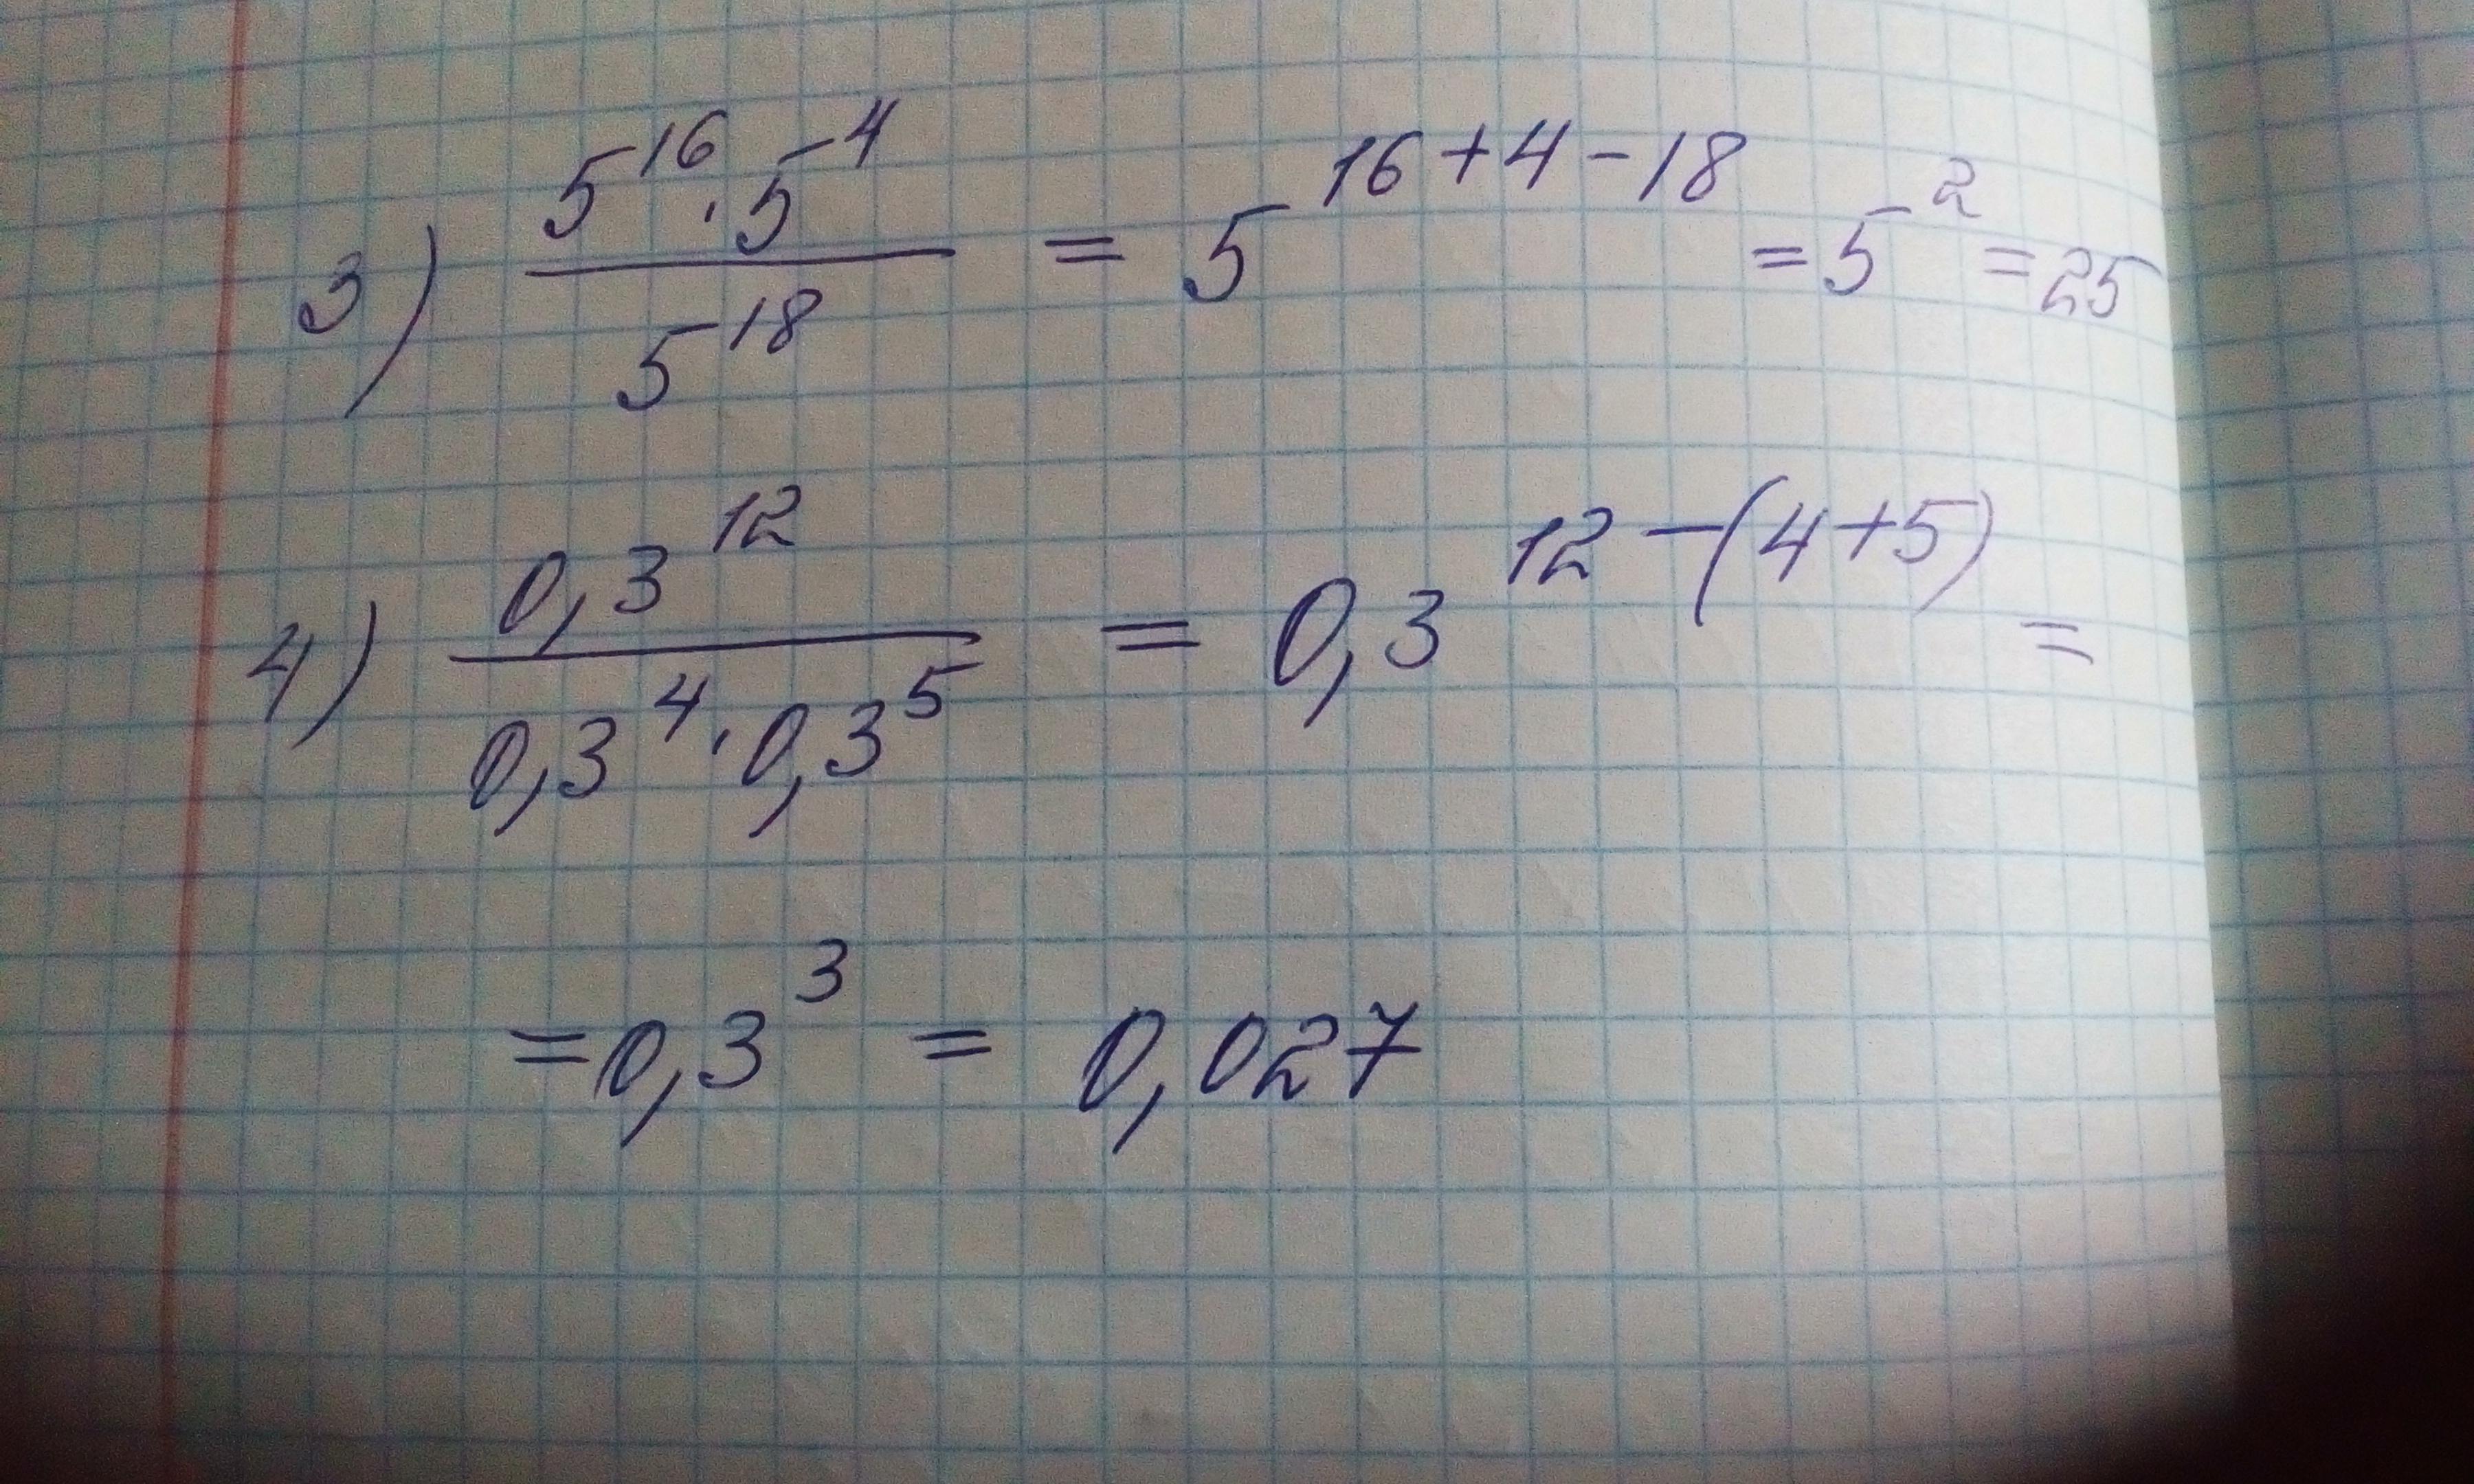 3) \frac{5^{16} \cdot 5^{4}}{5^{18}} = 5^{16+4-18} = 5^{2} = 25
4) \frac{0,3^{12}}{0,3^{4} \cdot 0,3^{5}} = 0,3^{12-(4+5)} =
= 0,3^{3} = 0,027